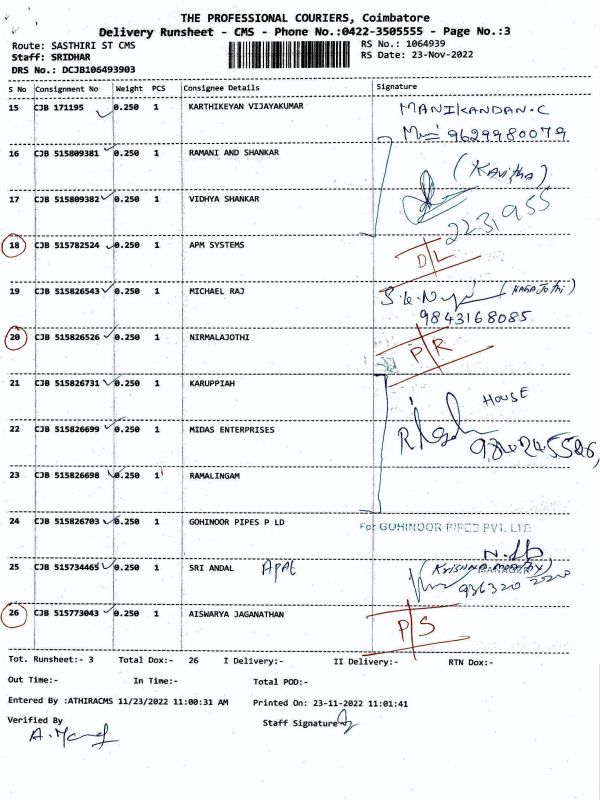 THE PROFESSIONAL COURIERS, Coimbatore
Delivery Runsheet - CMS - Phone No.:0422-3505555 - Page No.:3
Route: SASTHIRI ST CMS RS No.: 1064939
Staff: SRIDHAR RS Date: 23-Nov-2022
DRS No.: DCJB106493903
S No Consignment No Weight PCS Consignee Details Signature
15 CJB 171195 0.250 1 KARTHIKEYAN VIJAYAKUMAR MANIKANDAN.C
9629980079
16 CJB 515809381 0.250 1 RAMANI AND SHANKAR (Kavitha)
17 CJB 515809382 0.250 1 VIDHYA SHANKAR
2231955
18 CJB 515782524 0.250 1 APM SYSTEMS D/L
19 CJB 515826543 0.250 1 MICHAEL RAJ
9843168085
20 CJB 515826526 0.250 1 NIRMALAJOTHI P/R
21 CJB 515826731 0.250 1 KARUPPIAH HOUSE
22 CJB 515826699 0.250 1 MIDAS ENTERPRISES
23 CJB 515826698 0.250 1 RAMALINGAM
24 CJB 515826703 0.250 1 GOHINOOR PIPES P LD For GOHINOOR PIPES PVT. LTD.
MANAGER
25 CJB 515734465 0.250 1 SRI ANDAL
26 CJB 515773043 0.250 1 AISWARYA JAGANATHAN P/S
Tot. Runsheet:- 3 Total Dox:- 26 I Delivery:- II Delivery:- RTN Dox:-
Out Time:- In Time:- Total POD:-
Entered By :ATHIRACMS 11/23/2022 11:00:31 AM Printed On: 23-11-2022 11:01:41
Verified By Staff Signature